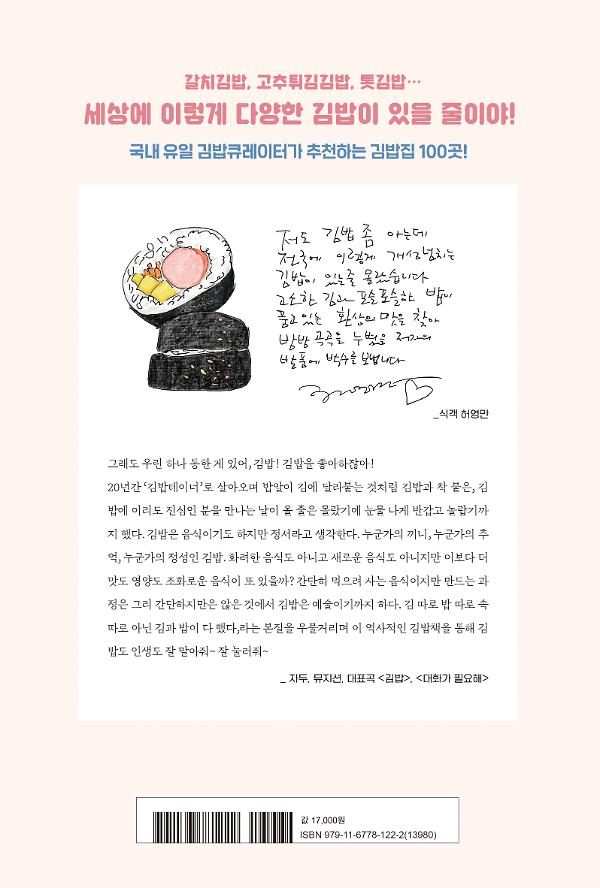 갈치김밥, 고추튀김김밥, 톳김밥…
세상에 이렇게 다양한 김밥이 있을 줄이야!
국내 유일 김밥큐레이터가 추천하는 김밥집 100곳!
저도 김밥 좀 아는데
전국에 이렇게 개성넘치는
김밥이 있는줄 몰랐습니다
고소한 김과 포슬포슬하 밥이
품고 있는 환상의 맛을 찾아
방방 곡곡을 누볐을 저자의
발품에 박수를 보냅니다
_식객 허영만
그래도 우린 하나 통한 게 있어, 김밥! 김밥을 좋아하잖아!
20년간 ‘김밥테이너’로 살아오며 밥알이 김에 달라붙는 것처럼 김밥과 착 붙은, 김
밥에 이리도 진심인 분을 만나는 날이 올 줄은 몰랐기에 눈물 나게 반갑고 놀랍기까
지 했다. 김밥은 음식이기도 하지만 정서라고 생각한다. 누군가의 끼니, 누군가의 추
억, 누군가의 정성인 김밥. 화려한 음식도 아니고 새로운 음식도 아니지만 이보다 더
맛도 영양도 조화로운 음식이 또 있을까? 간단히 먹으려 사는 음식이지만 만드는 과
정은 그리 간단하지만은 않은 것에서 김밥은 예술이기까지 하다. 김 따로 밥 따로 속
따로 아닌 김과 밥이 다 했다,라는 본질을 우물거리며 이 역사적인 김밥책을 통해 김
밥도 인생도 잘 말아줘~ 잘 눌러줘~
_ 자두, 뮤지션, 대표곡 <김밥>, <대화가 필요해>
값 17,000원
ISBN 979-11-6778-122-2(13980)